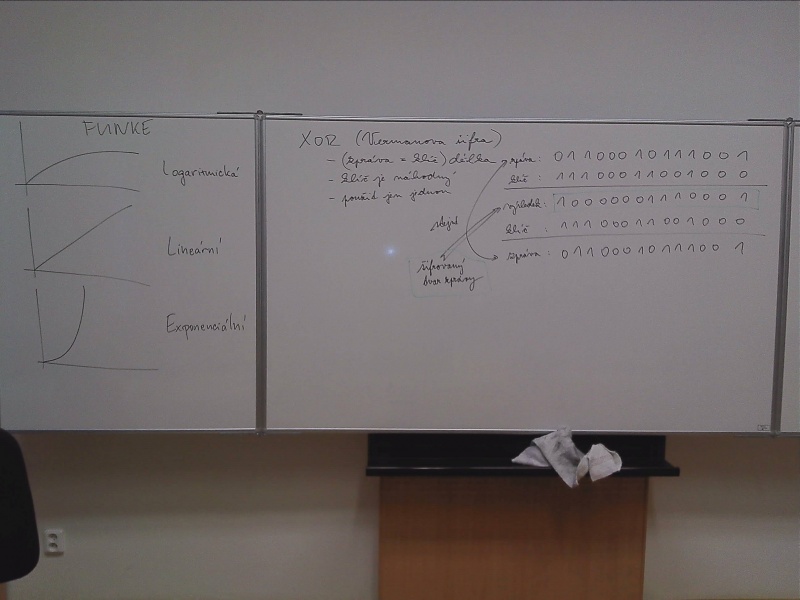 FUNKE
Logaritmická
Lineární
Exponenciální
XOR (Vermanova šifra)
- (zpráva = klíč) délka
- klíč je náhodný
- použid jen jednou
zpráva: 0 1 1 0 0 0 1 0 1 1 1 0 0 1
klíč: 1 1 1 0 0 0 1 1 0 0 1 0 0 0
výsledek: 1 0 0 0 0 0 0 1 1 1 0 0 0 1
klíč: 1 1 1 0 0 0 1 1 0 0 1 0 0 0
zpráva: 0 1 1 0 0 0 1 0 1 1 1 0 0 1
stejné
šifrovaný
tvar zprávy